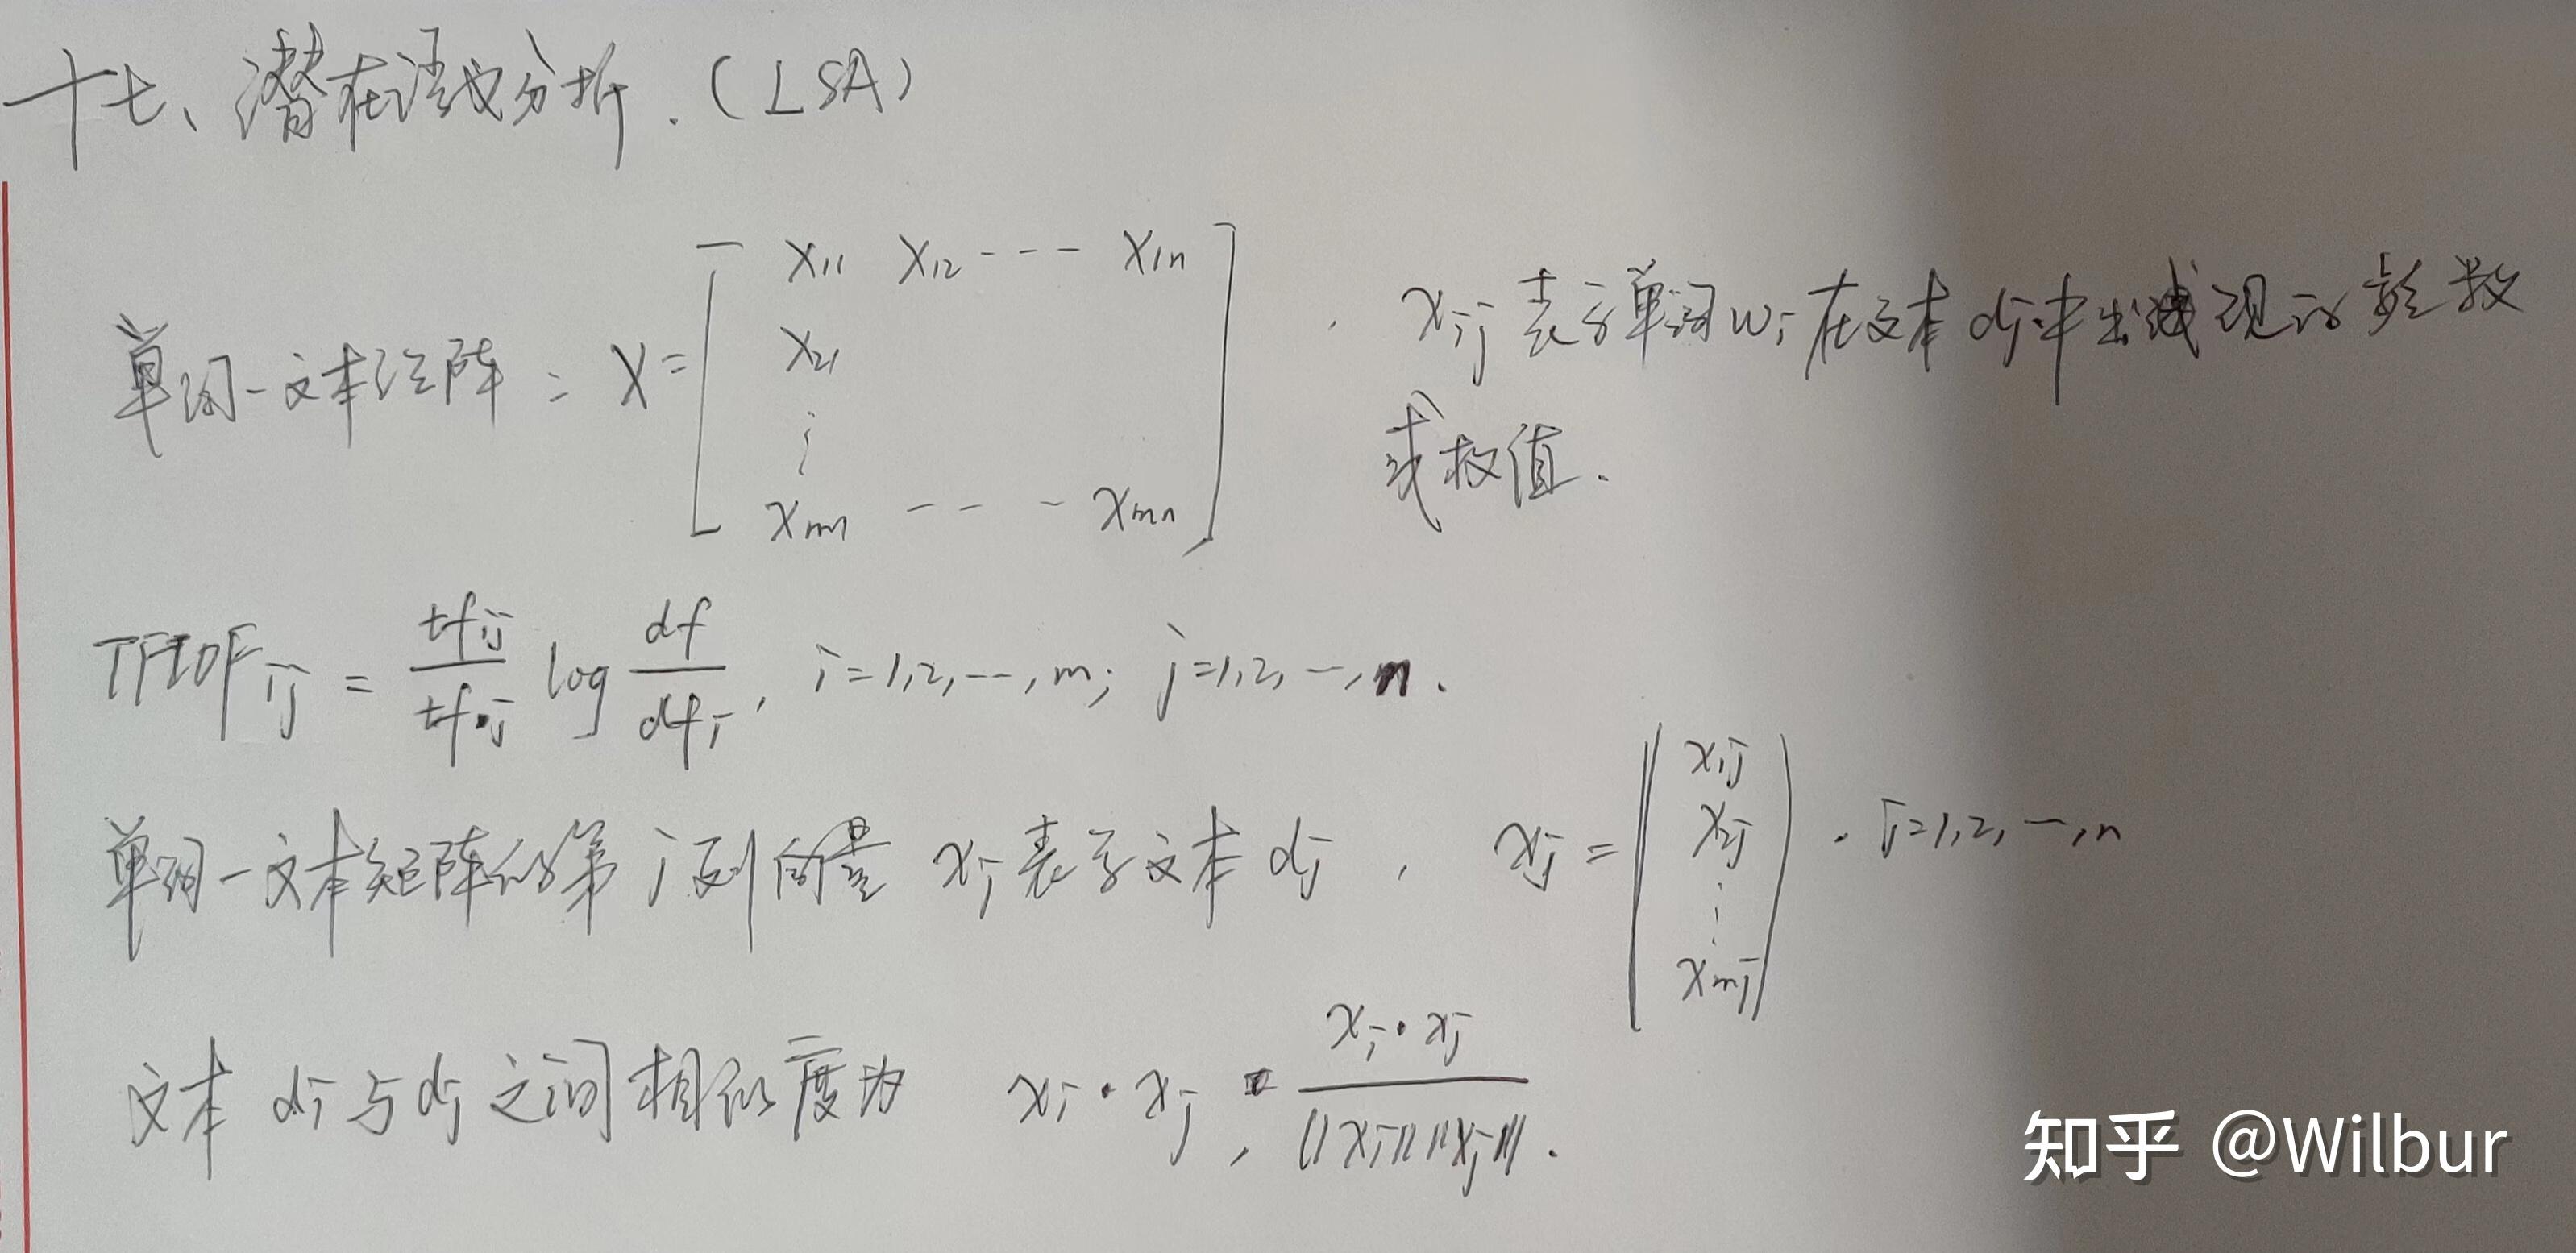 十七、潜在语义分析.(LSA)
单词-文本矩阵: X = [ x₁₁ x₁₂ --- x₁ₙ
x₂₁
⋮
xₘ₁ --- xₘₙ ] . xᵢⱼ表示单词wᵢ在文本dⱼ中出现的频数
或权值.
TFIDFᵢⱼ = tfᵢⱼ/tf.ⱼ log df/dfᵢ, i=1,2,--,m; j=1,2,--,n.
单词-文本矩阵的第j列向量xⱼ表示文本dⱼ, xⱼ = ( x₁ⱼ
x₂ⱼ
⋮
xₘⱼ ) . j=1,2,--,n
文本dᵢ与dⱼ之间相似度为 xᵢ·xⱼ, xᵢ·xⱼ/||xᵢ|| ||xⱼ||.
知乎 @Wilbur